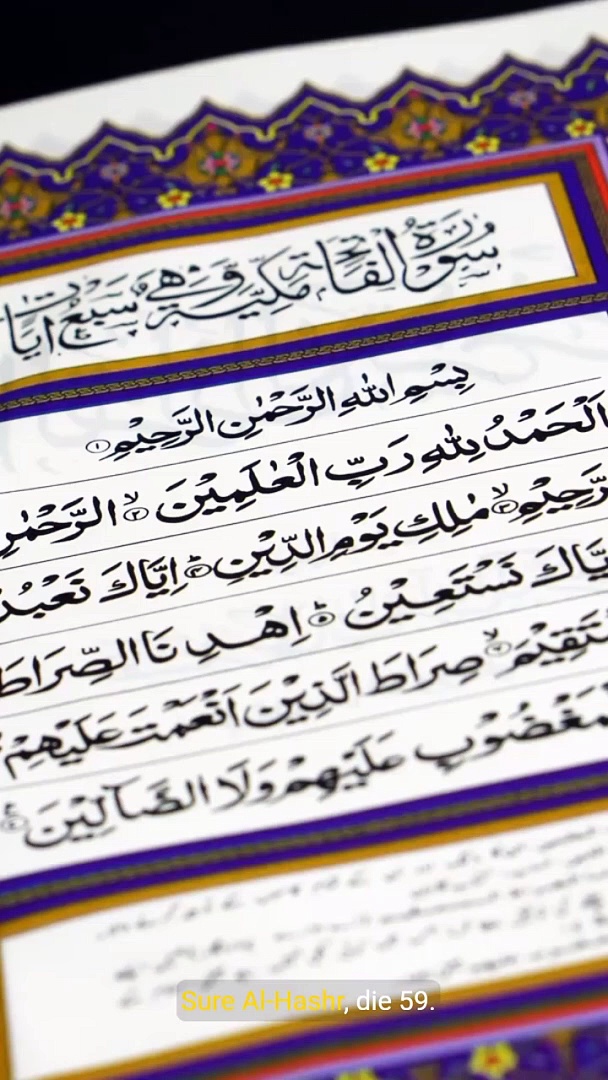 سُوْرَةُ الْفَاتِحَةِ مَكِّيَّةٌ وَّهِيَ سَبْعُ اٰيَاتٍ
بِسْمِ اللّٰهِ الرَّحْمٰنِ الرَّحِيْمِ ۝۱
اَلْحَمْدُ لِلّٰهِ رَبِّ الْعٰلَمِيْنَ ۝۲ الرَّحْمٰنِ
رَّحِيْمِ ۝۳ مٰلِكِ يَوْمِ الدِّيْنِ ۝۴ اِيَّاكَ نَعْبُدُ
يَّاكَ نَسْتَعِيْنُ ۝۵ اِهْدِنَا الصِّرَاطَ
تَقِيْمَ ۝۶ صِرَاطَ الَّذِيْنَ اَنْعَمْتَ عَلَيْهِمْ
مَغْضُوْبِ عَلَيْهِمْ وَلَا الضَّآلِّيْنَ ۝۷
Sure Al-Hashr, die 59.